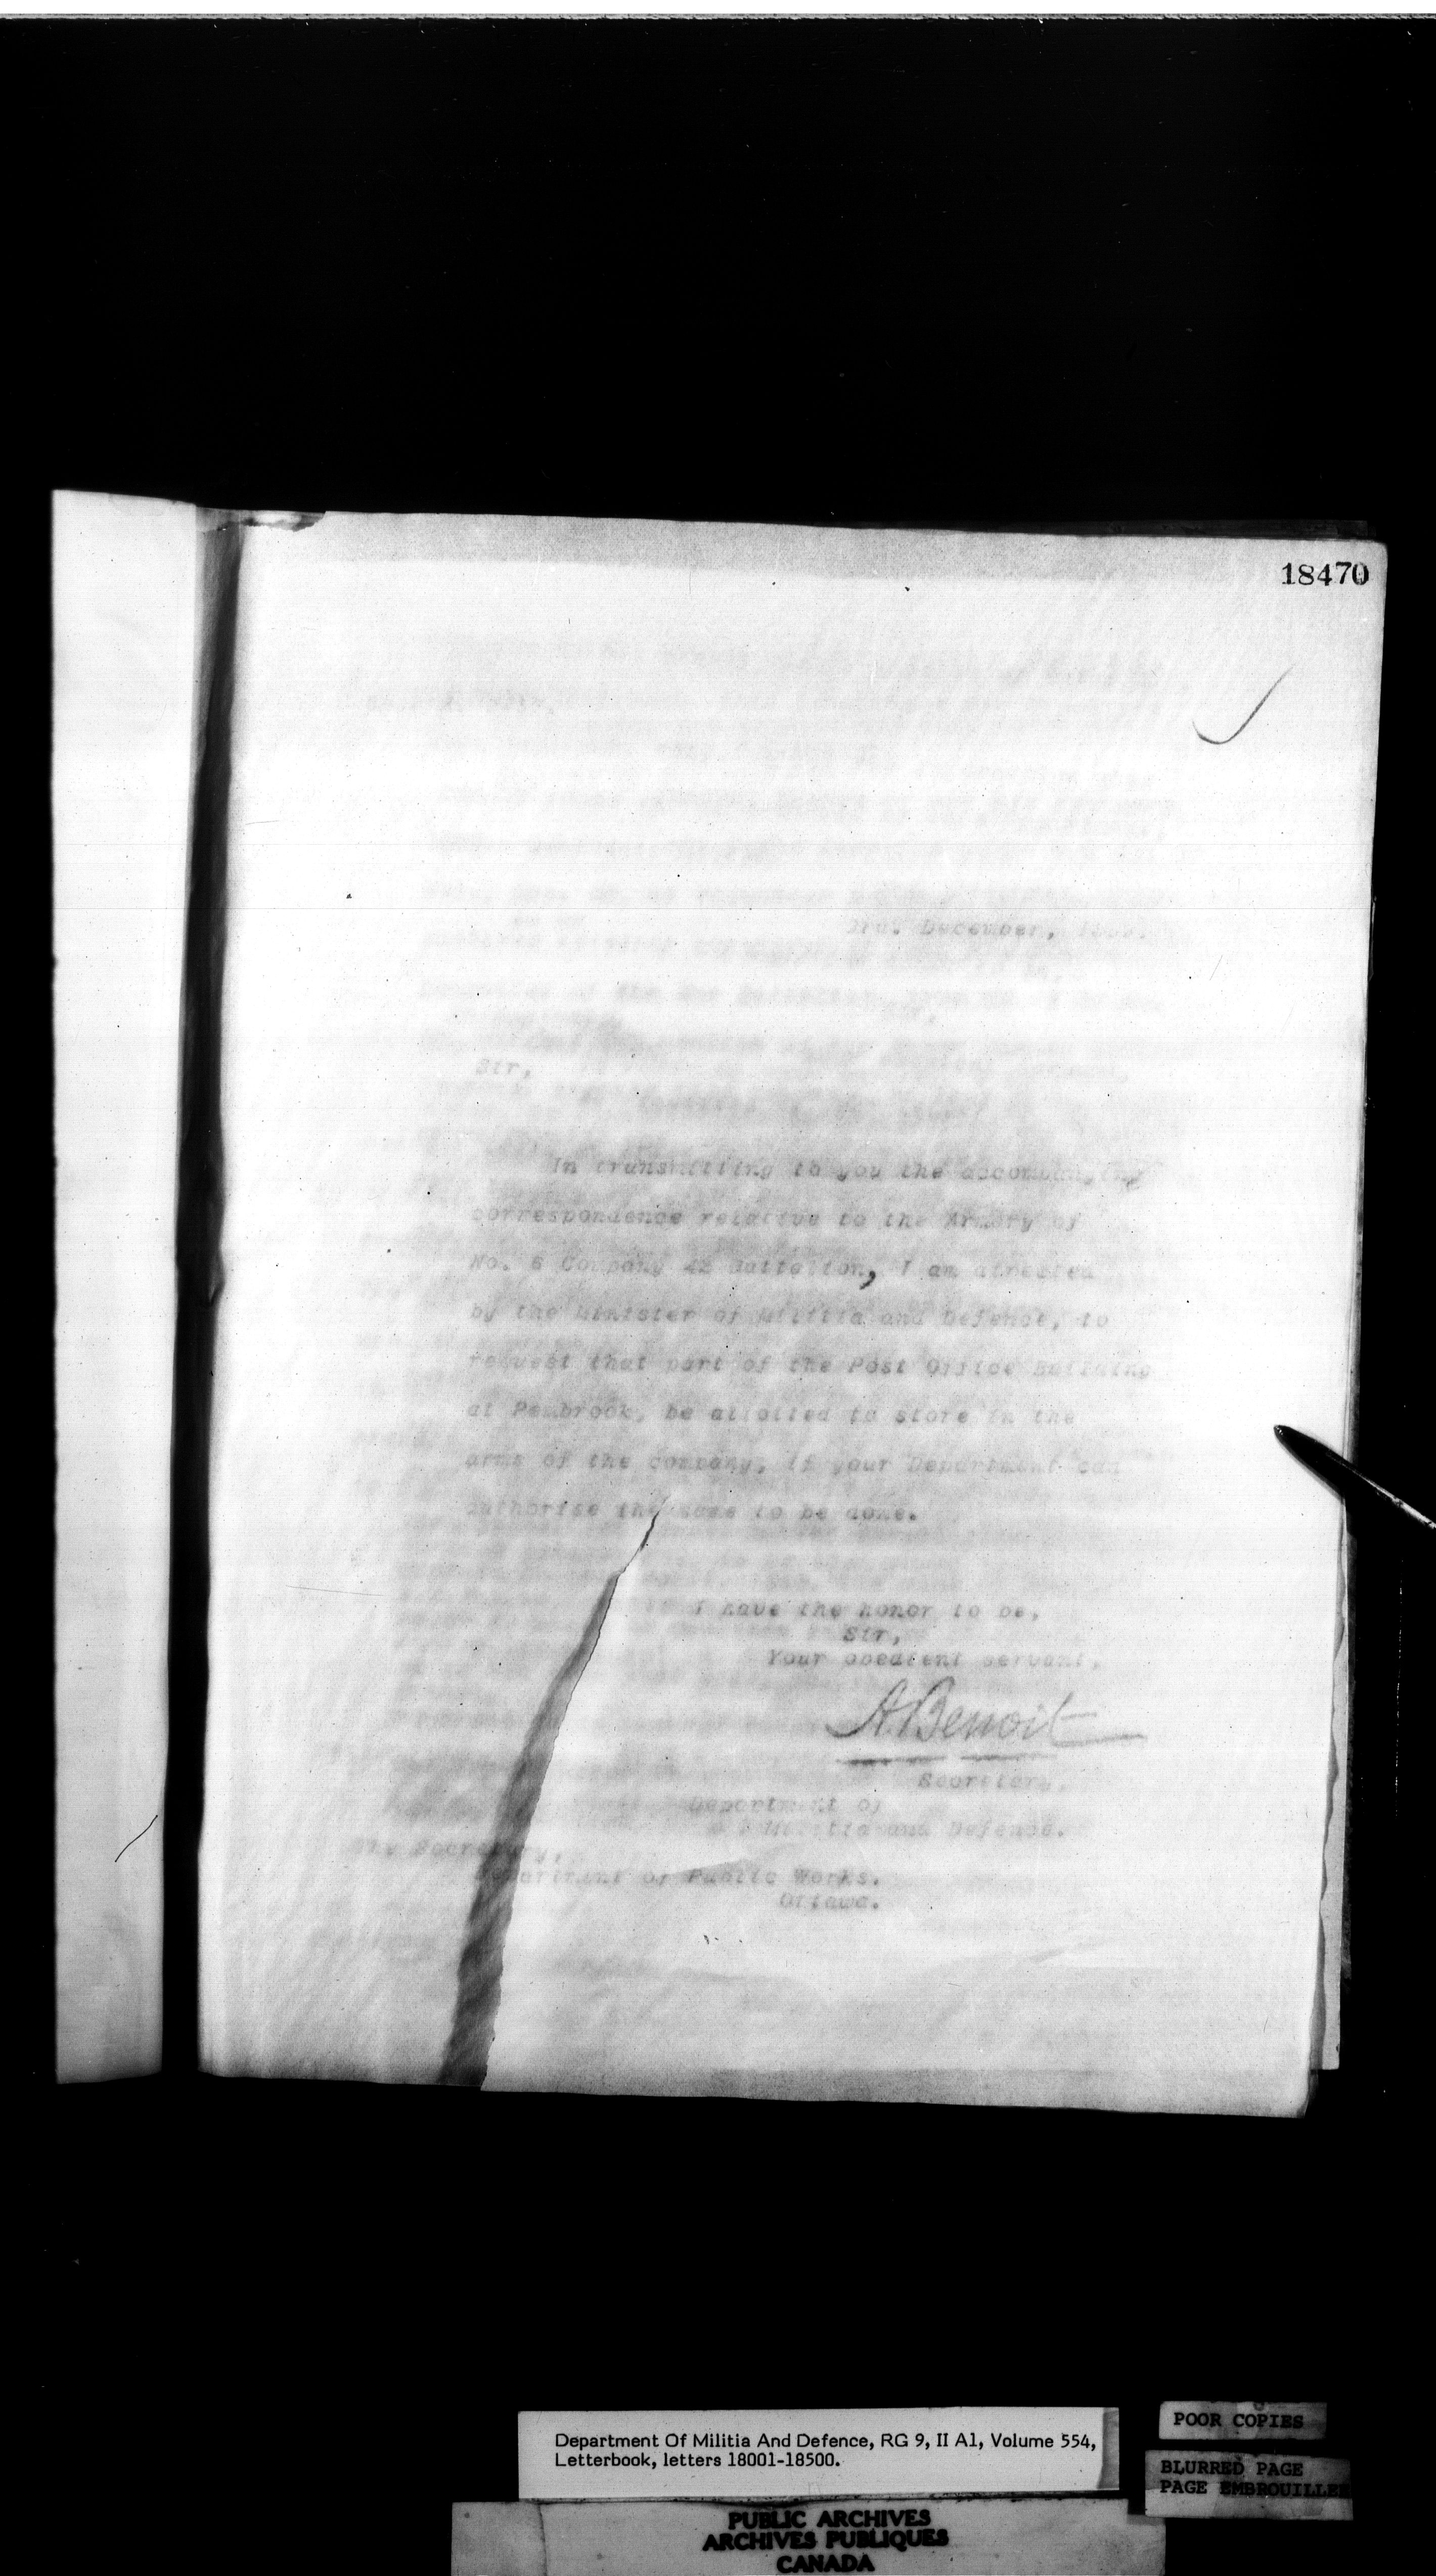 18470
3rd. December,
Sir,
In transmitting to you the accompanying
correspondence relative to the Armory of
No. 6 Company 42 Battalion, I am directed
by the Minister of Militia and Defence, to
request that part of the Post Office Building
at Pembrook, be allotted to store in the
arms of the company, if your Department can
authorise the same to be done.
I have the honor to be,
Sir,
Your obedient servant,
A. Benoit
Secretary,
Department of
Militia and Defence.
The Secretary,
Department of Public Works.
Ottawa.
Department Of Militia And Defence, RG 9, II A1, Volume 554,
Letterbook, letters 18001-18500.
POOR COPIES
BLURRED PAGE
PAGE EMBROUILLEE
PUBLIC ARCHIVES
ARCHIVES PUBLIQUES
CANADA